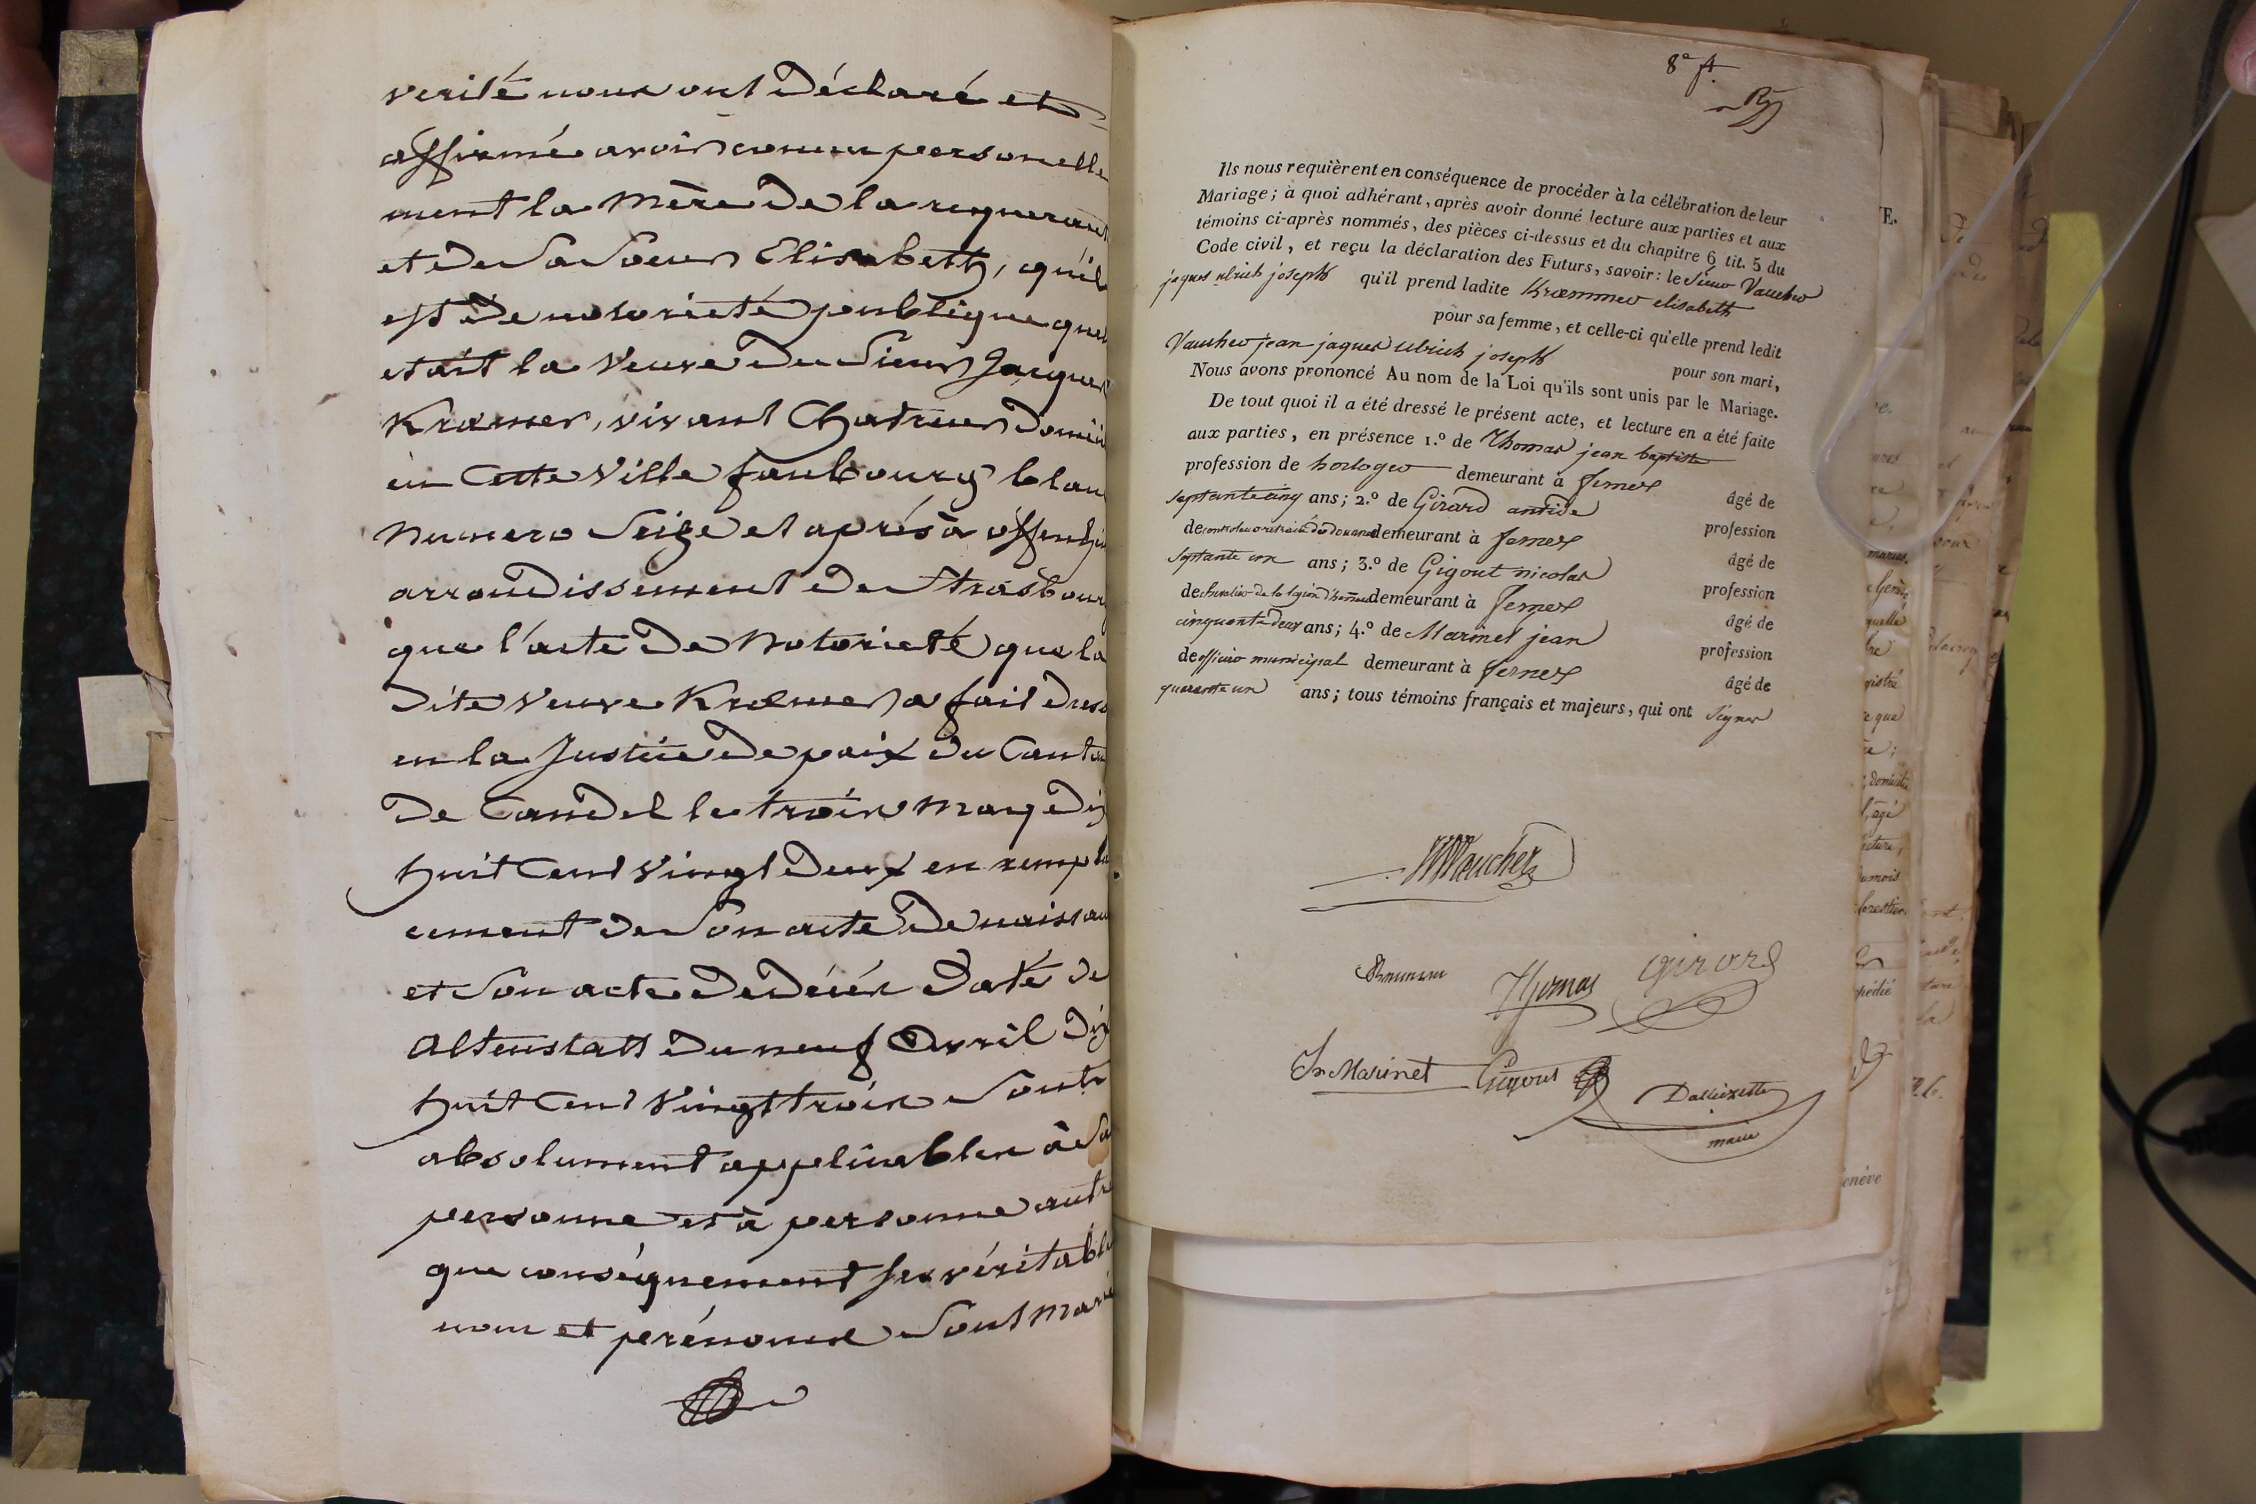 verité nous ont Déclaré et
affirmé avoir connu personelle
ment la Mère De la requerant
et De Sa Soeur Elisabeth, qu'il
est De notorieté publique que
etait la Veuve Du Sieur Jacques
Kræmer, vivant Chatreur Domici
in Cette Ville faubourg blanc
Numero Seize et après à offenh
arrondissement De Strasbourg
que l'acte De Notorieté que la
Dite Veuve Kræmer a fait Dres
en la Justice De paix Du Canton
De Candel le trois May Dix
huit Cent Vingt Deux en rempla
cement De Son acte De naissan
et Son acte De Décés Daté De
Altenstatt Du neuf Avril Dix
huit Cent Vingt trois Sont
absolument applicables à Sa
personne et à personne autre
que conséquement Ses véritable
nom et prénoms Sont Marie
8e ft.
Ils nous requièrent en conséquence de procéder à la célébration de leur
Mariage; à quoi adhérant, après avoir donné lecture aux parties et aux
témoins ci-après nommés, des pièces ci-dessus et du chapitre 6 tit. 5 du
Code civil, et reçu la déclaration des Futurs, savoir: le Sieur Vaucher
jaques ulrich joseph qu'il prend ladite Kræmmer elisabeth
pour sa femme, et celle-ci qu'elle prend ledit
Vaucher jean jaques ulrich joseph pour son mari,
Nous avons prononcé Au nom de la Loi qu'ils sont unis par le Mariage.
De tout quoi il a été dressé le présent acte, et lecture en a été faite
aux parties, en présence 1.º de Thomas jean baptiste
profession de horloger demeurant à fernex âgé de
septante cinq ans; 2.º de Girard antide profession
de controleur retraité des douanes demeurant à fernex âgé de
septante un ans; 3.º de Gigout nicolas profession
de chevalier de la légion d'honneur demeurant à fernex âgé de
cinquante deux ans; 4.º de Marinet jean profession
de officier municipal demeurant à fernex âgé de
quarante un ans; tous témoins français et majeurs, qui ont signer
Vaucher
Thomas Girard
Jn Marinet Gigout
Dallizette
maire